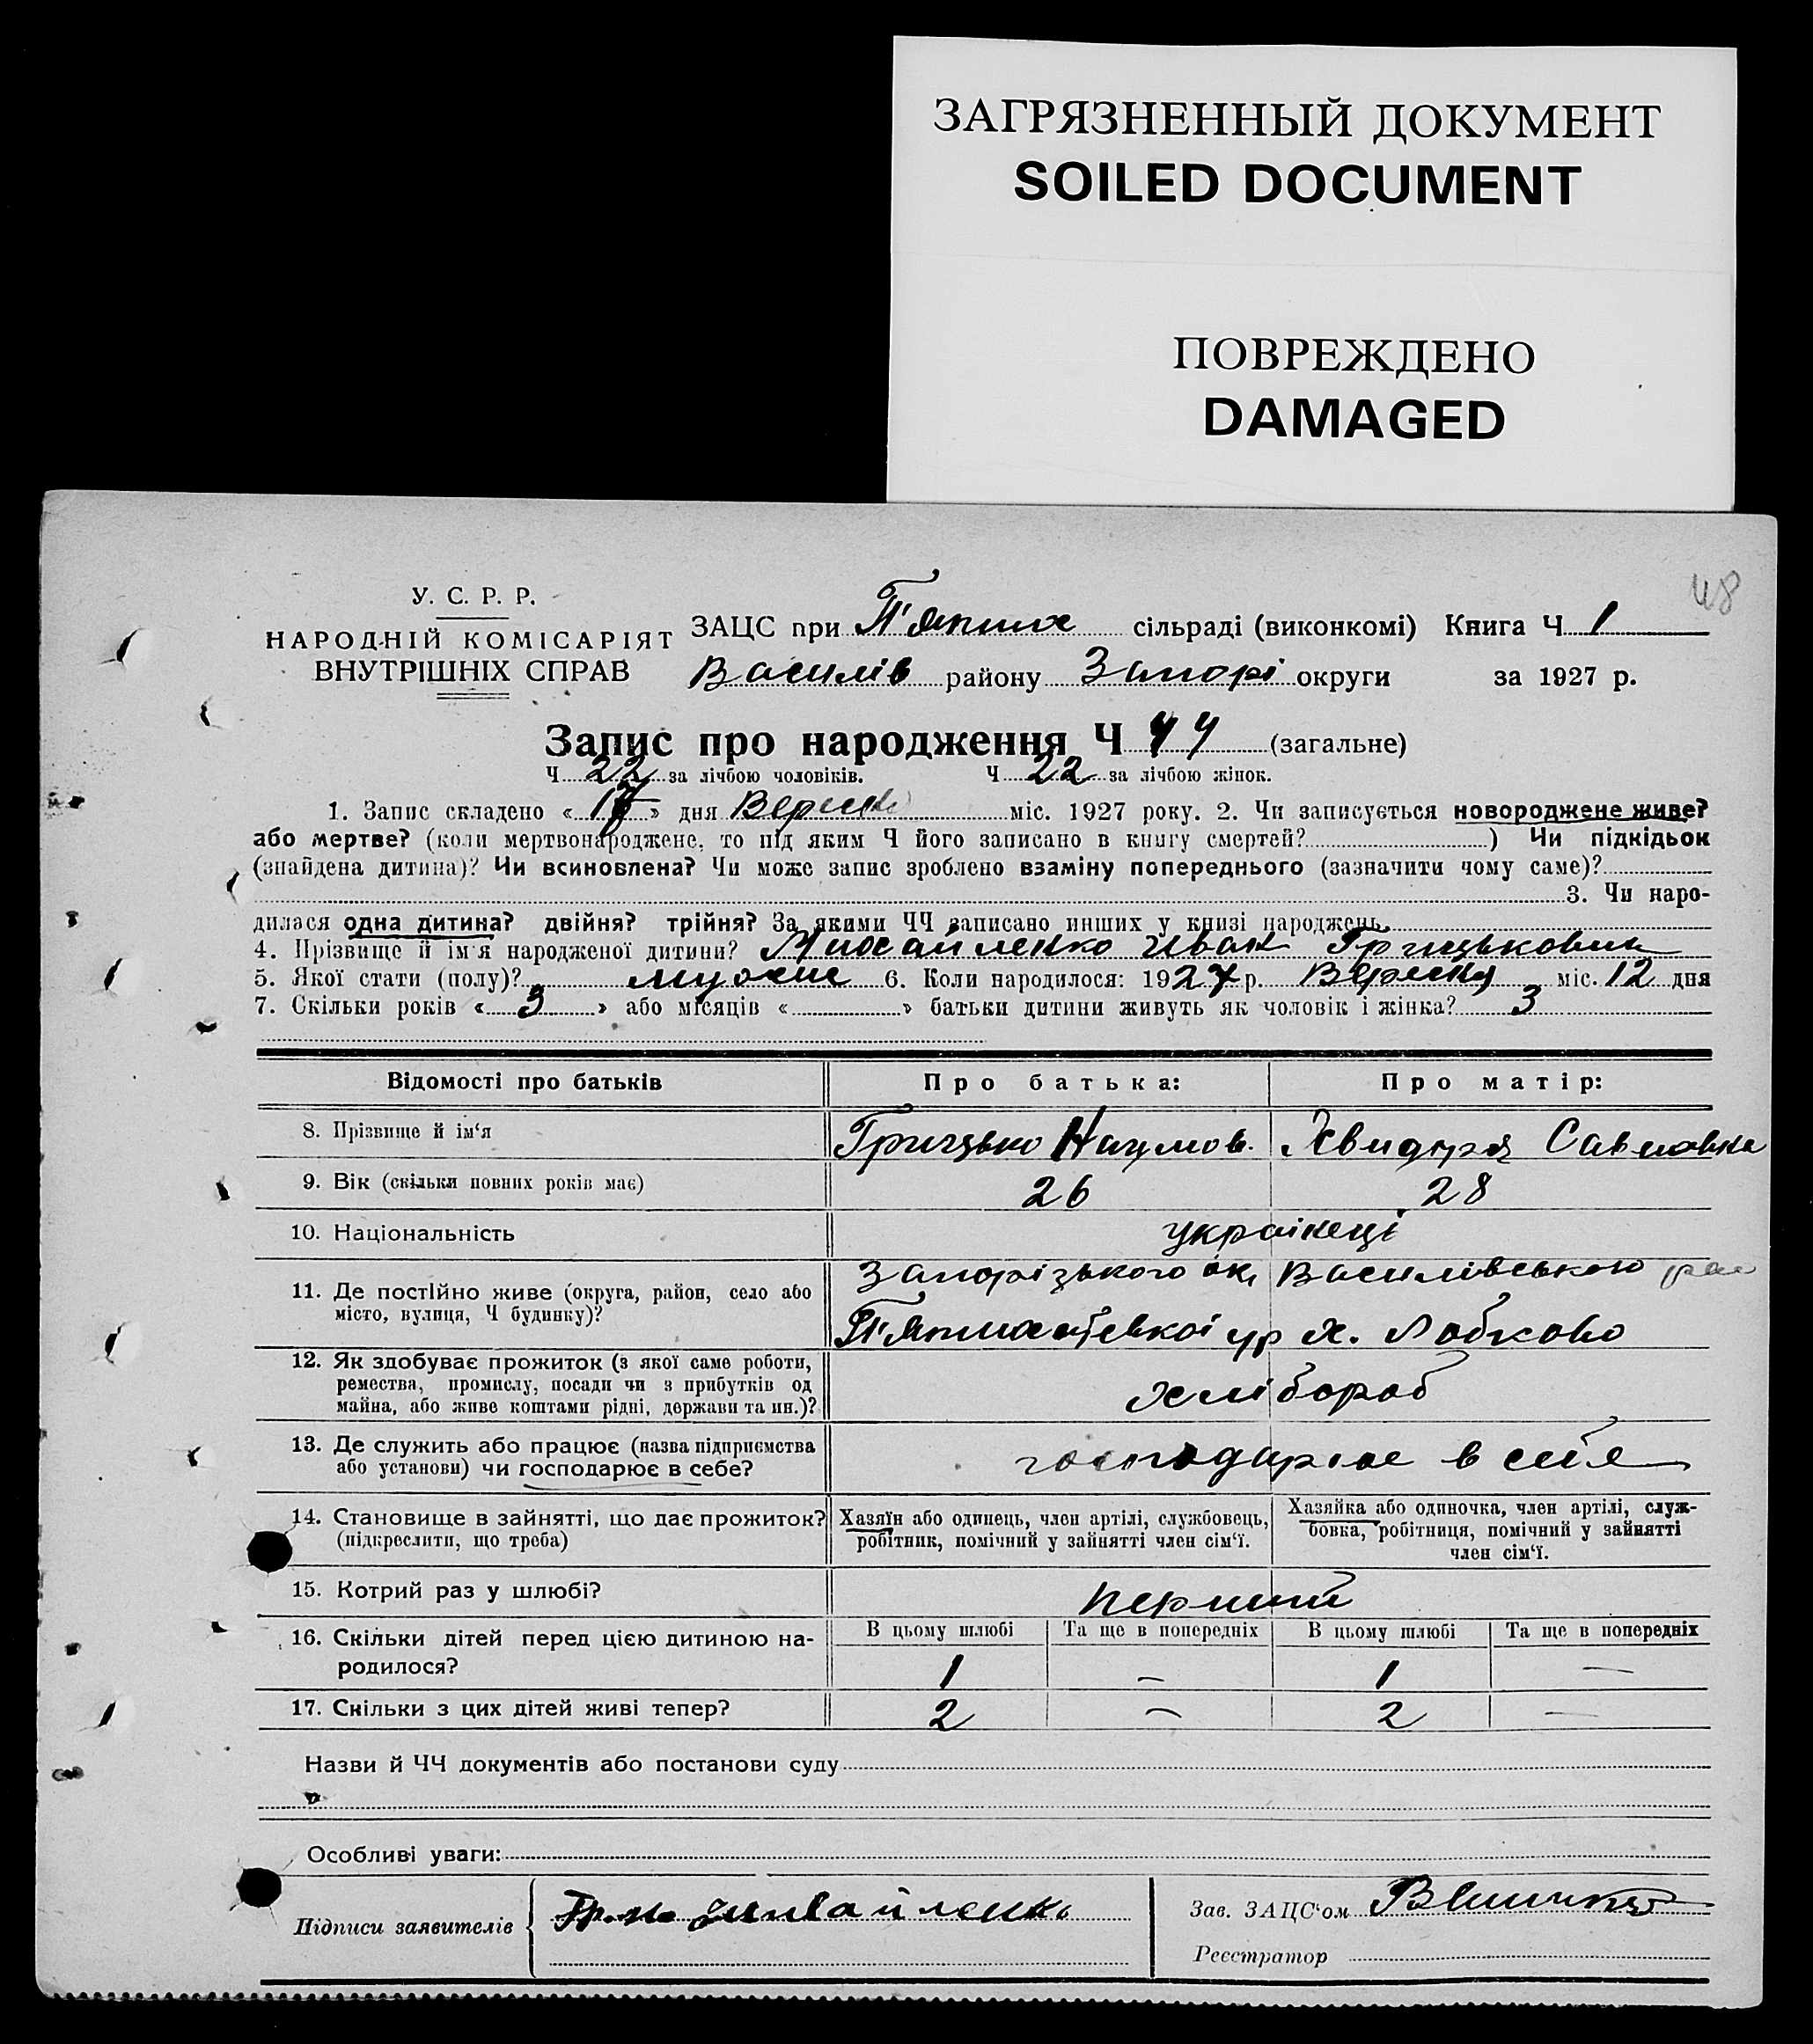 ЗАГРЯЗНЕННЫЙ ДОКУМЕНТ
SOILED DOCUMENT
ПОВРЕЖДЕНО
DAMAGED
48
У. С. Р. Р.
НАРОДНІЙ КОМІСАРІЯТ
ВНУТРІШНІХ СПРАВ
ЗАЦС при П'ятих сільраді (виконкомі) Книга Ч 1
Василів району Запорі округи за 1927 р.
Запис про народження Ч 44 (загальне)
Ч 22 за лічбою чоловіків. Ч 22 за лічбою жінок.
1. Запис складено « 17 » дня Вересня міс. 1927 року. 2. Чи записується новороджене живе?
або мертве? (коли мертвонароджене, то під яким Ч його записано в книгу смертей? ) Чи підкідьок
(знайдена дитина)? Чи всиновлена? Чи може запис зроблено взаміну попереднього (зазначити чому саме)?
3. Чи наро-
дилася одна дитина? двійня? трійня? За якими ЧЧ записано инших у книзі народжень
4. Прізвище й ім'я народженої дитини? Михайленко Іван Грицькович
5. Якої стати (полу)? мужчис 6. Коли народилося: 1927 р. Вересня міс. 12 дня
7. Скільки років « 3 » або місяців « » батьки дитини живуть як чоловік і жінка? 3
Відомості про батьків Про батька: Про матір:
8. Прізвище й ім'я Грицько Наумов. Хвидора Савловна
9. Вік (скільки повних років має) 26 28
10. Національність українці
11. Де постійно живе (округа, район, село або місто, вулиця, Ч будинку)? Запорізького ок, Василівського рай
х. Лобково
12. Як здобуває прожиток (з якої саме роботи, ремества, промислу, посади чи з прибутків од майна, або живе коштами рідні, держави та ин.)? хлібороб
13. Де служить або працює (назва підприємства або установи) чи господарює в себе? господарює в себе
14. Становище в зайнятті, що дає прожиток? (підкреслити, що треба)
Хазяїн або одинець, член артілі, службовець, робітник, помічний у зайнятті член сім'ї.
Хазяйка або одиночка, член артілі, служ-
бовка, робітниця, помічний у зайнятті
член сім'ї.
15. Котрий раз у шлюбі? перший
16. Скільки дітей перед цією дитиною на-
родилося?
В цьому шлюбі Та ще в попередніх В цьому шлюбі Та ще в попередніх
1 – 1 –
17. Скільки з цих дітей живі тепер? 2 – 2 –
Назви й ЧЧ документів або постанови суду
Особливі уваги:
Підписи заявителів
Зав. ЗАЦС'ом
Реєстратор